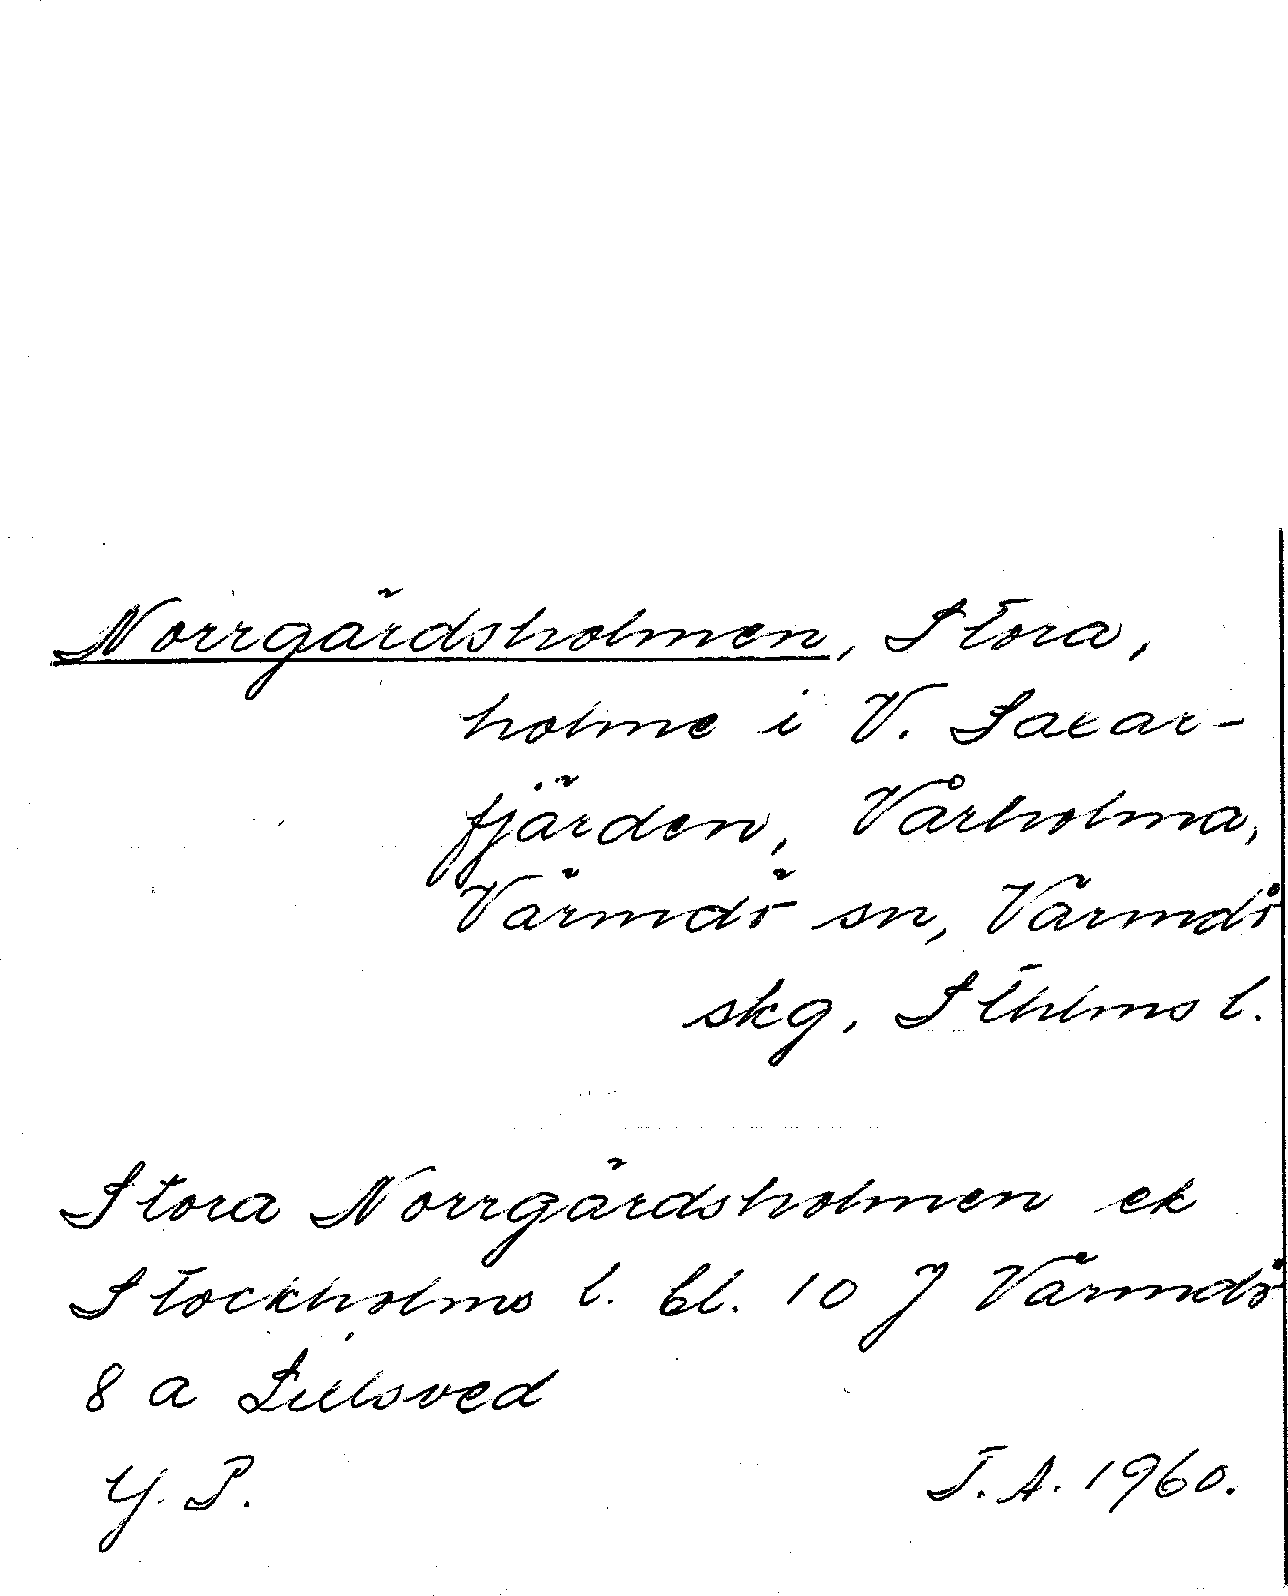 Norrgårdsholmen, Stora,
holme i V. Saxar-
fjärden, Vårholma,
Värmdö sn, Värmdö
skg, Sthlms l.
Stora Norrgårdsholmen ek
Stockholms l. bl. 10 J Värmdö
8 a Lillsved
Y. P. T. A. 1960.